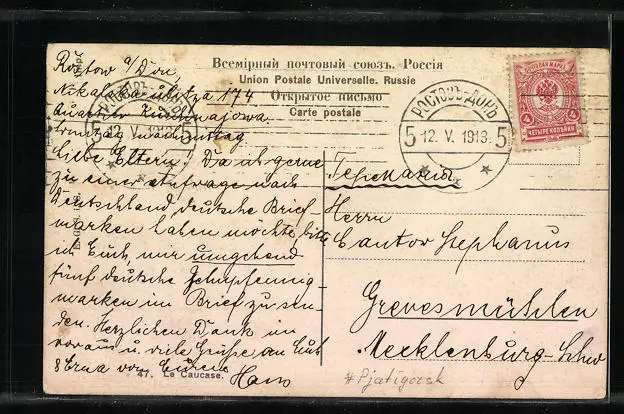 Всемірный почтовый союзъ. Россія
Union Postale Universelle. Russie
Открытое письмо
Carte postale
ПОЧТОВАЯ МАРКА
4 4
ЧЕТЫРЕ КОПѢЙКИ
РОСТОВЪ-ДОНЪ
5 12. V. 1913. 5
РОСТОВЪ-ДОНЪ
5 12. 1913. 5
Rostow a/Don,
174
Liebe Eltern! Da ich gerne
zu einer Anfrage nach
Deutschland deutsche Brief-
marken haben möchte, bitte
ich Euch, mir umgehend
fünf deutsche Zehnpfennig-
marken im Brief zu sen-
den. Herzlichen Dank im
voraus u. viele Grüße an Euch
& Erna von Eurem
Hans
Германия
Herrn
Cantor Stephanus
Grevesmühlen
Mecklenburg-Schw
47. Le Caucase.
#Pjatigorsk